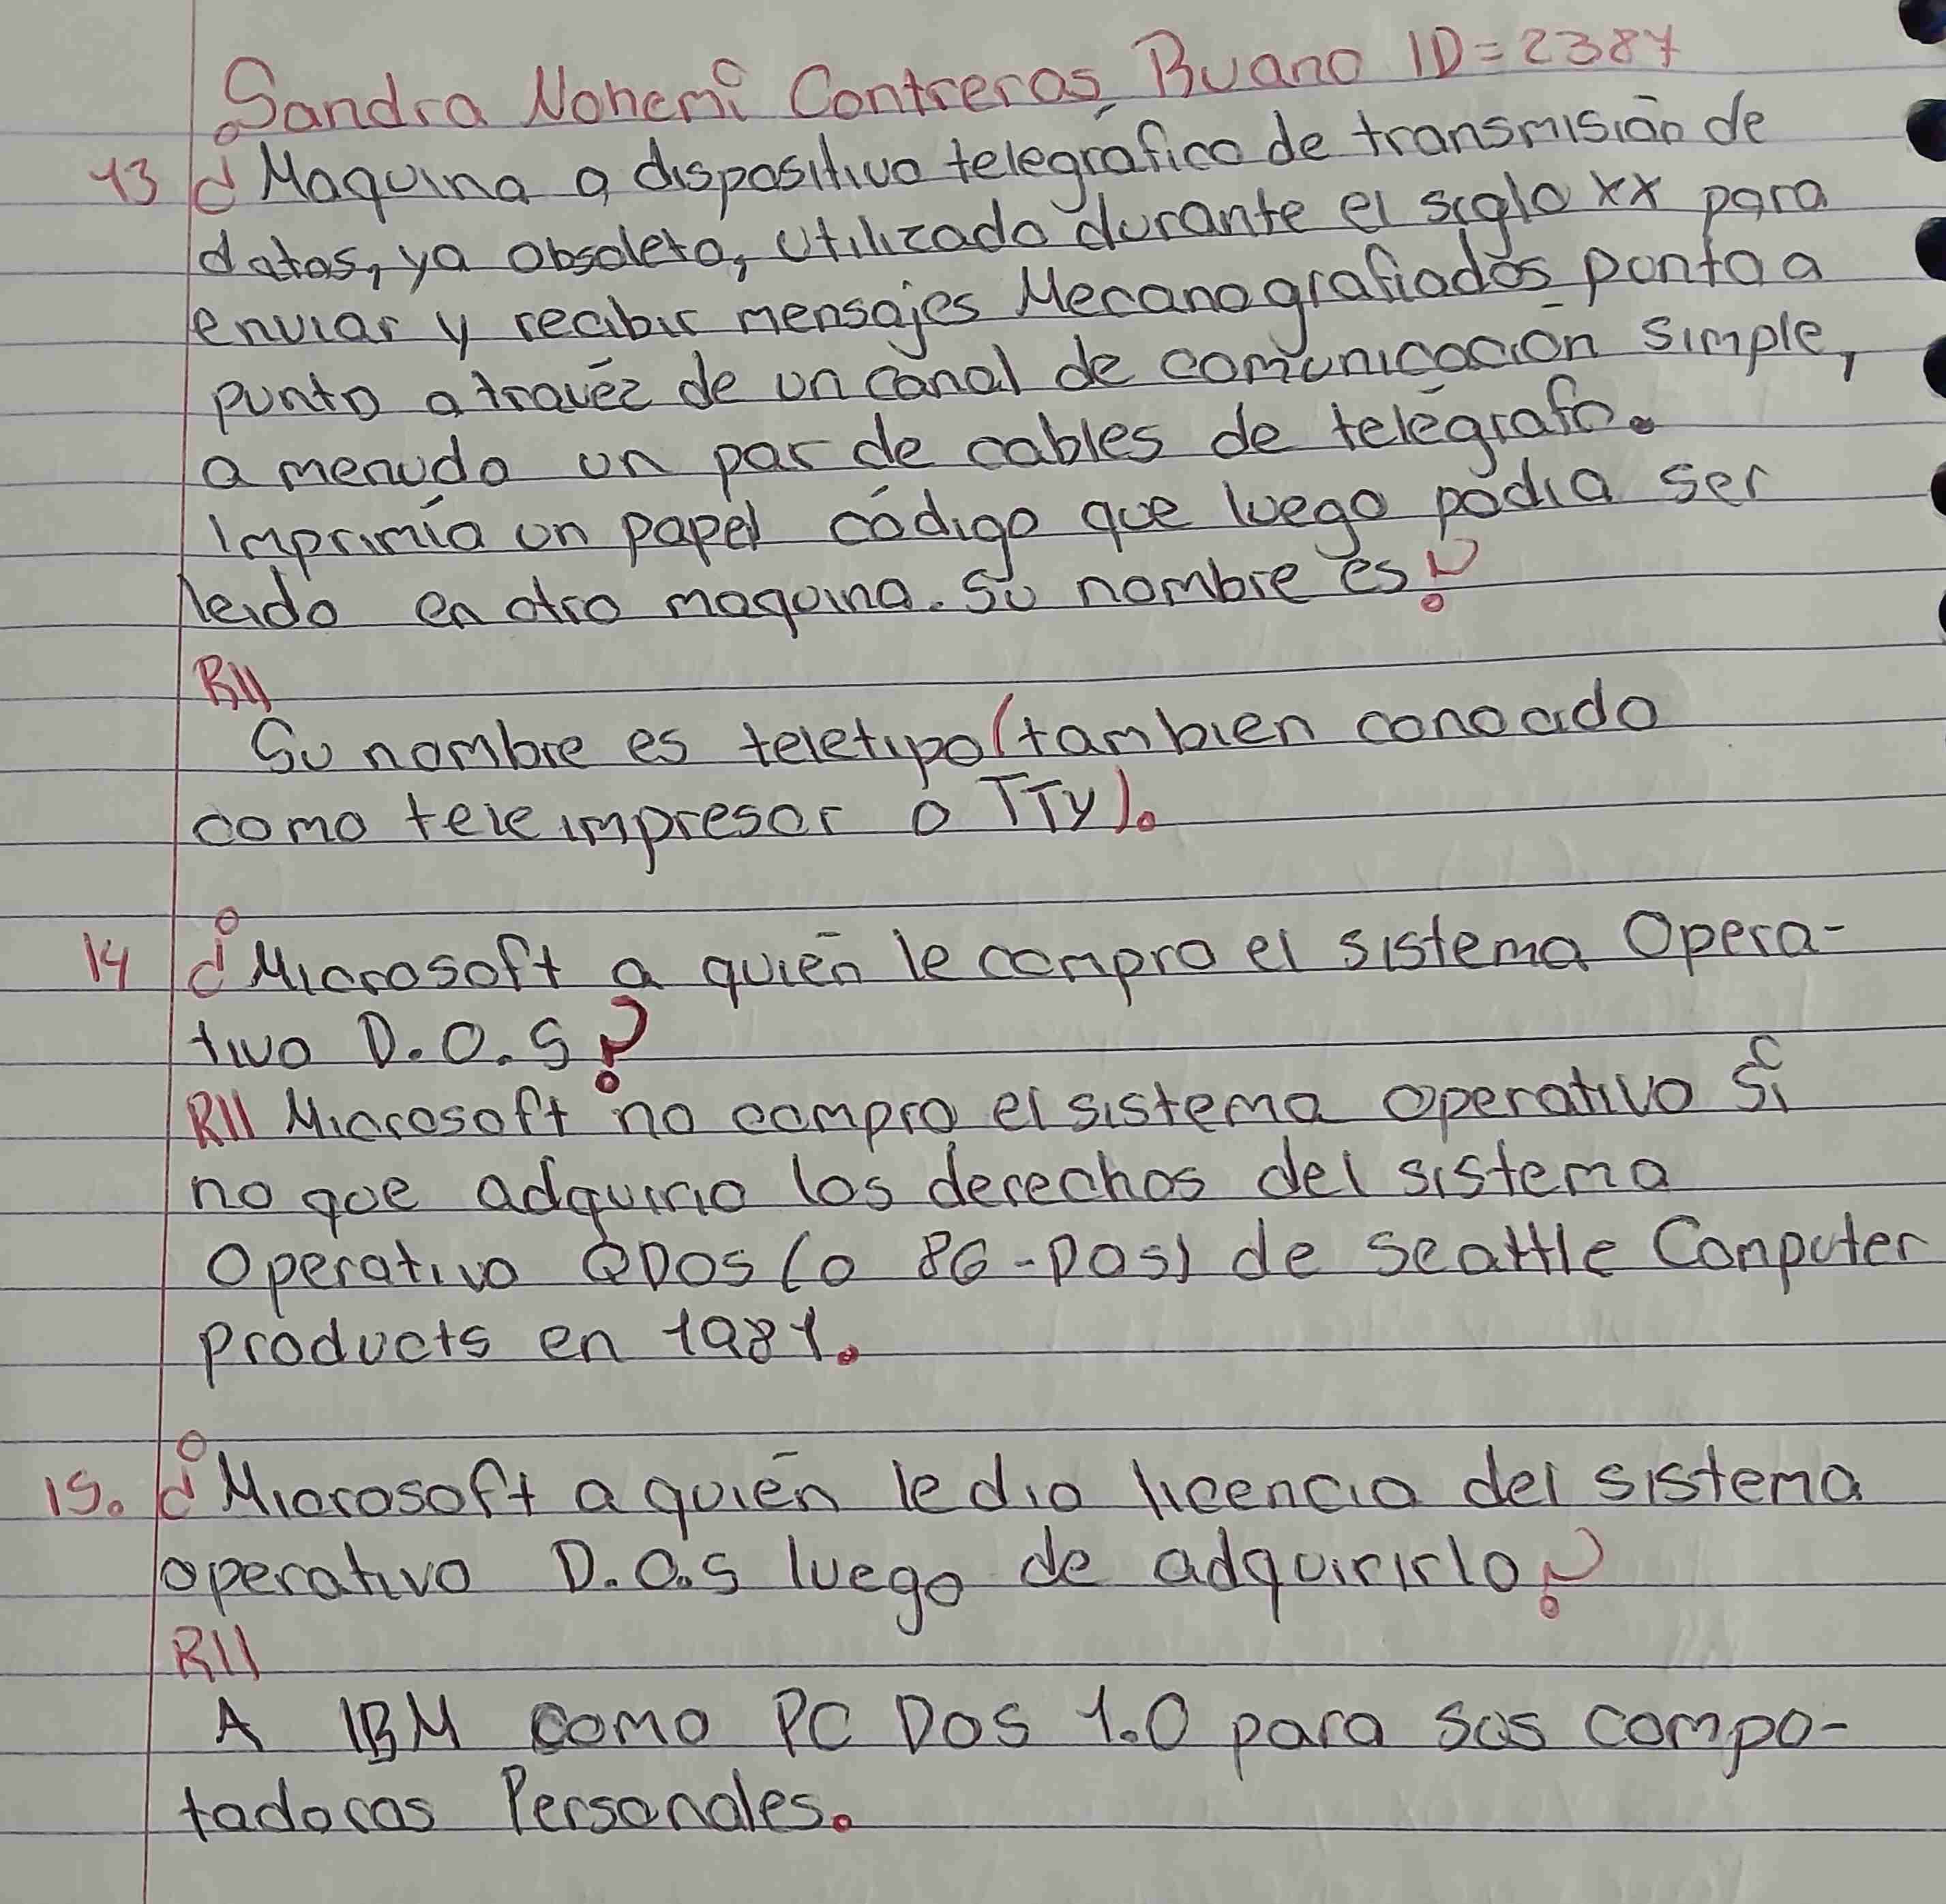 Sandra Nohemi Contreras Buano ID=2387
13 ¿Maquina o dispositivo telegráfico de transmisión de
datos, ya obsoleto, utilizado durante el siglo xx para
enviar y recibir mensajes Mecanografiados ponto a
punto a travéz de un canal de comunicación simple,
a menudo un par de cables de telégrafo.
Imprimía un papel código que luego podia ser
leido en otro maquina. Su nombre es?
R//
Su nombre es teletipo (tambien conocido
como teleimpresor o TTy).
14 ¿Microsoft a quién le compro el sistema Opera-
tivo D.O.S?
R// Microsoft no compro el sistema operativo Si
no que adquirio los derechos del sistema
Operativo QDOS (o 86-DOS) de Seattle Computer
products en 1981.
15. ¿Microsoft a quién le dio licencia del sistema
operativo D.O.S luego de adquirirlo?
R//
A IBM como PC DOS 1.0 para sus compo-
tadoras Personales.